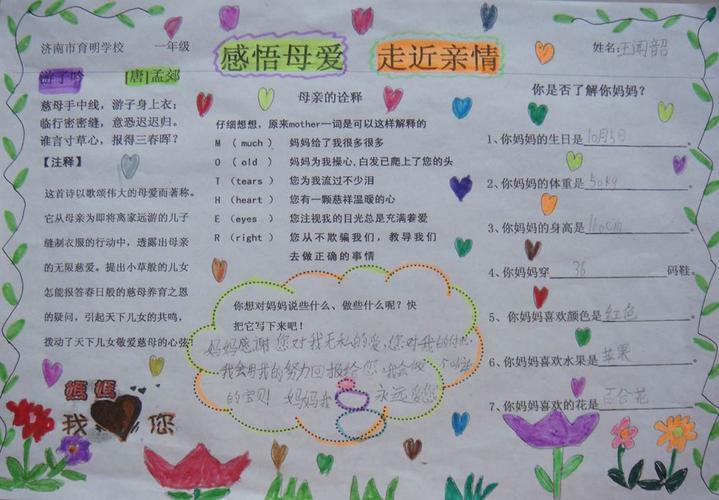 济南市育明学校 一年级
感悟母爱 走近亲情
姓名:王闻韶
游子吟 [唐]孟郊
慈母手中线，游子身上衣；
临行密密缝，意恐迟迟归。
谁言寸草心，报得三春晖？
【注释】
这首诗以歌颂伟大的母爱而著称。
它从母亲为即将离家远游的儿子
缝制衣服的行动中，透露出母亲
的无限慈爱。提出小草般的儿女
怎能报答春日般的慈母养育之恩
的疑问，引起天下儿女的共鸣，
拨动了天下儿女敬爱慈母的心弦。
妈妈
我 您
母亲的诠释
仔细想想，原来mother一词是可以这样解释的
M （much） 妈妈给了我很多很多
O （old） 妈妈为我操心，白发已爬上了您的头
T （tears） 您为我流过不少泪
H （heart） 您有一颗慈祥温暖的心
E （eyes） 您注视我的目光总是充满着爱
R （right） 您从不欺骗我们，教导我们
去做正确的事情
你想对妈妈说些什么、做些什么呢？快
把它写下来吧！
妈妈感谢您对我无私的爱,您对我的付出
我会用我的努力回报给您 我会做一个
的宝贝！ 妈妈我 永远爱您
你是否了解你妈妈？
1、你妈妈的生日是10月5日。
2、你妈妈的体重是50kg。
3、你妈妈的身高是160cm。
4、你妈妈穿36码鞋。
5、你妈妈喜欢颜色是红色。
6、你妈妈喜欢水果是苹果。
7、你妈妈喜欢的花是百合花。